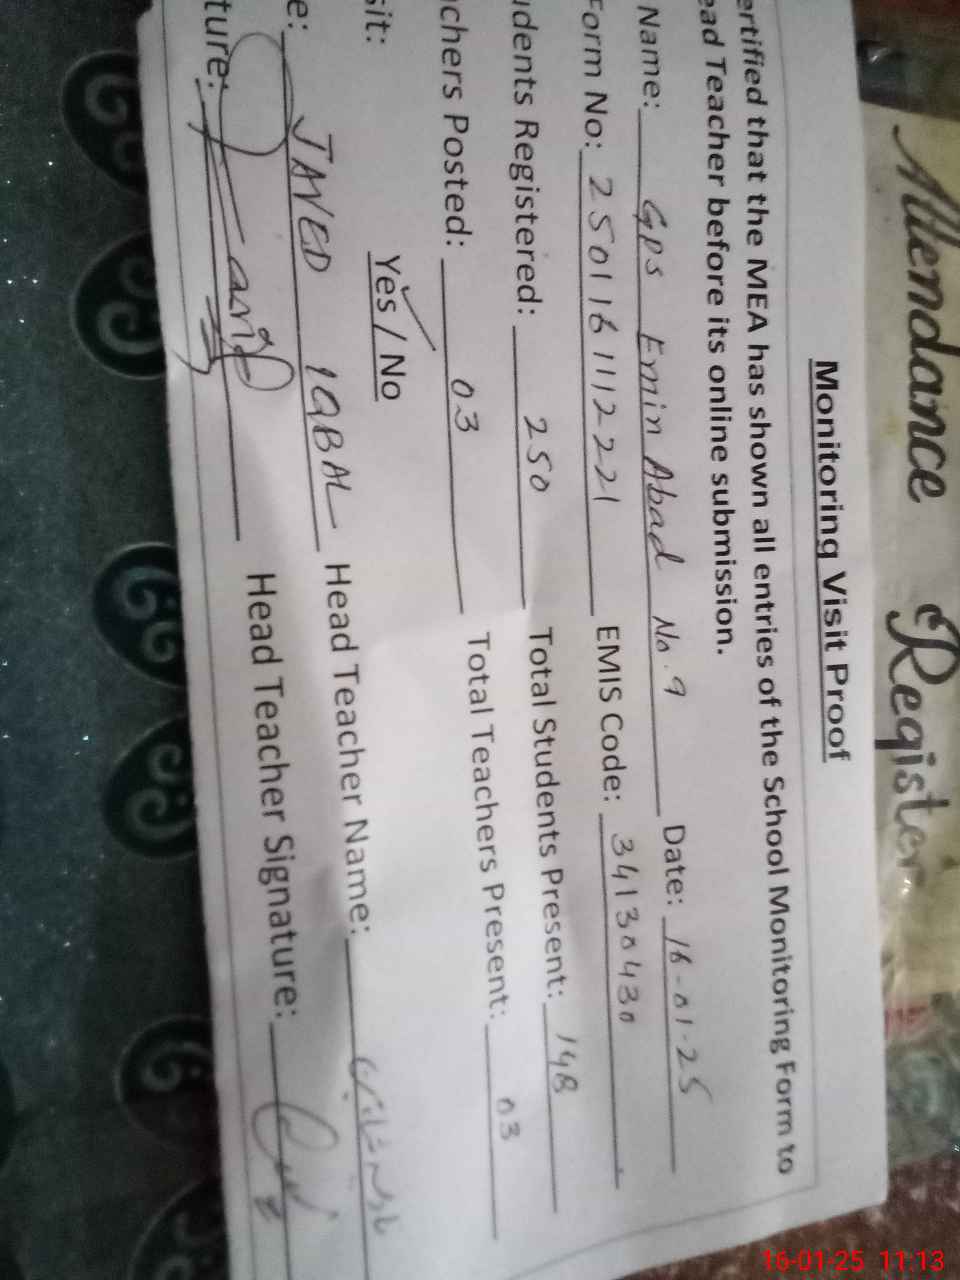 Attendance Register
Monitoring Visit Proof
ertified that the MEA has shown all entries of the School Monitoring Form to
ead Teacher before its online submission.
Name: GPS Emin Abad No. 9 Date: 16-01-25
Form No: 2501161112221 EMIS Code: 34130430
udents Registered: 250 Total Students Present: 148
chers Posted: 03 Total Teachers Present: 03
sit: Yes / No
e: JAVED IQBAL Head Teacher Name:
ture: Head Teacher Signature:
16-01-25 11:13